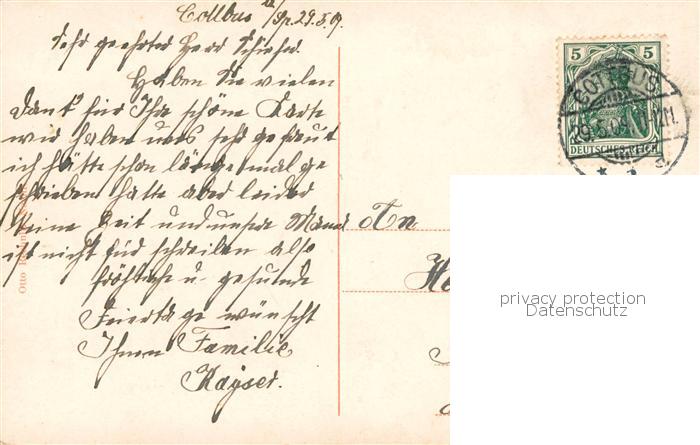 Cottbus a/Sp. 29.5.09.
Sehr geehrter Herr
Haben Sie vielen
Dank für Ihre schöne Karte
wir haben uns sehr gefreut
ich hätte schon länger mal ge
schrieben hatte aber leider
keine Zeit und unser Mann
ist nicht für schreiben also
fröhliche u. gesunde
Feierta ge wünscht
Ihnen Familie
Kayser.
Otto
5 5
COTTBUS
29.5.09. 11-12V.
DEUTSCHES REICH
An
privacy protection
Datenschutz